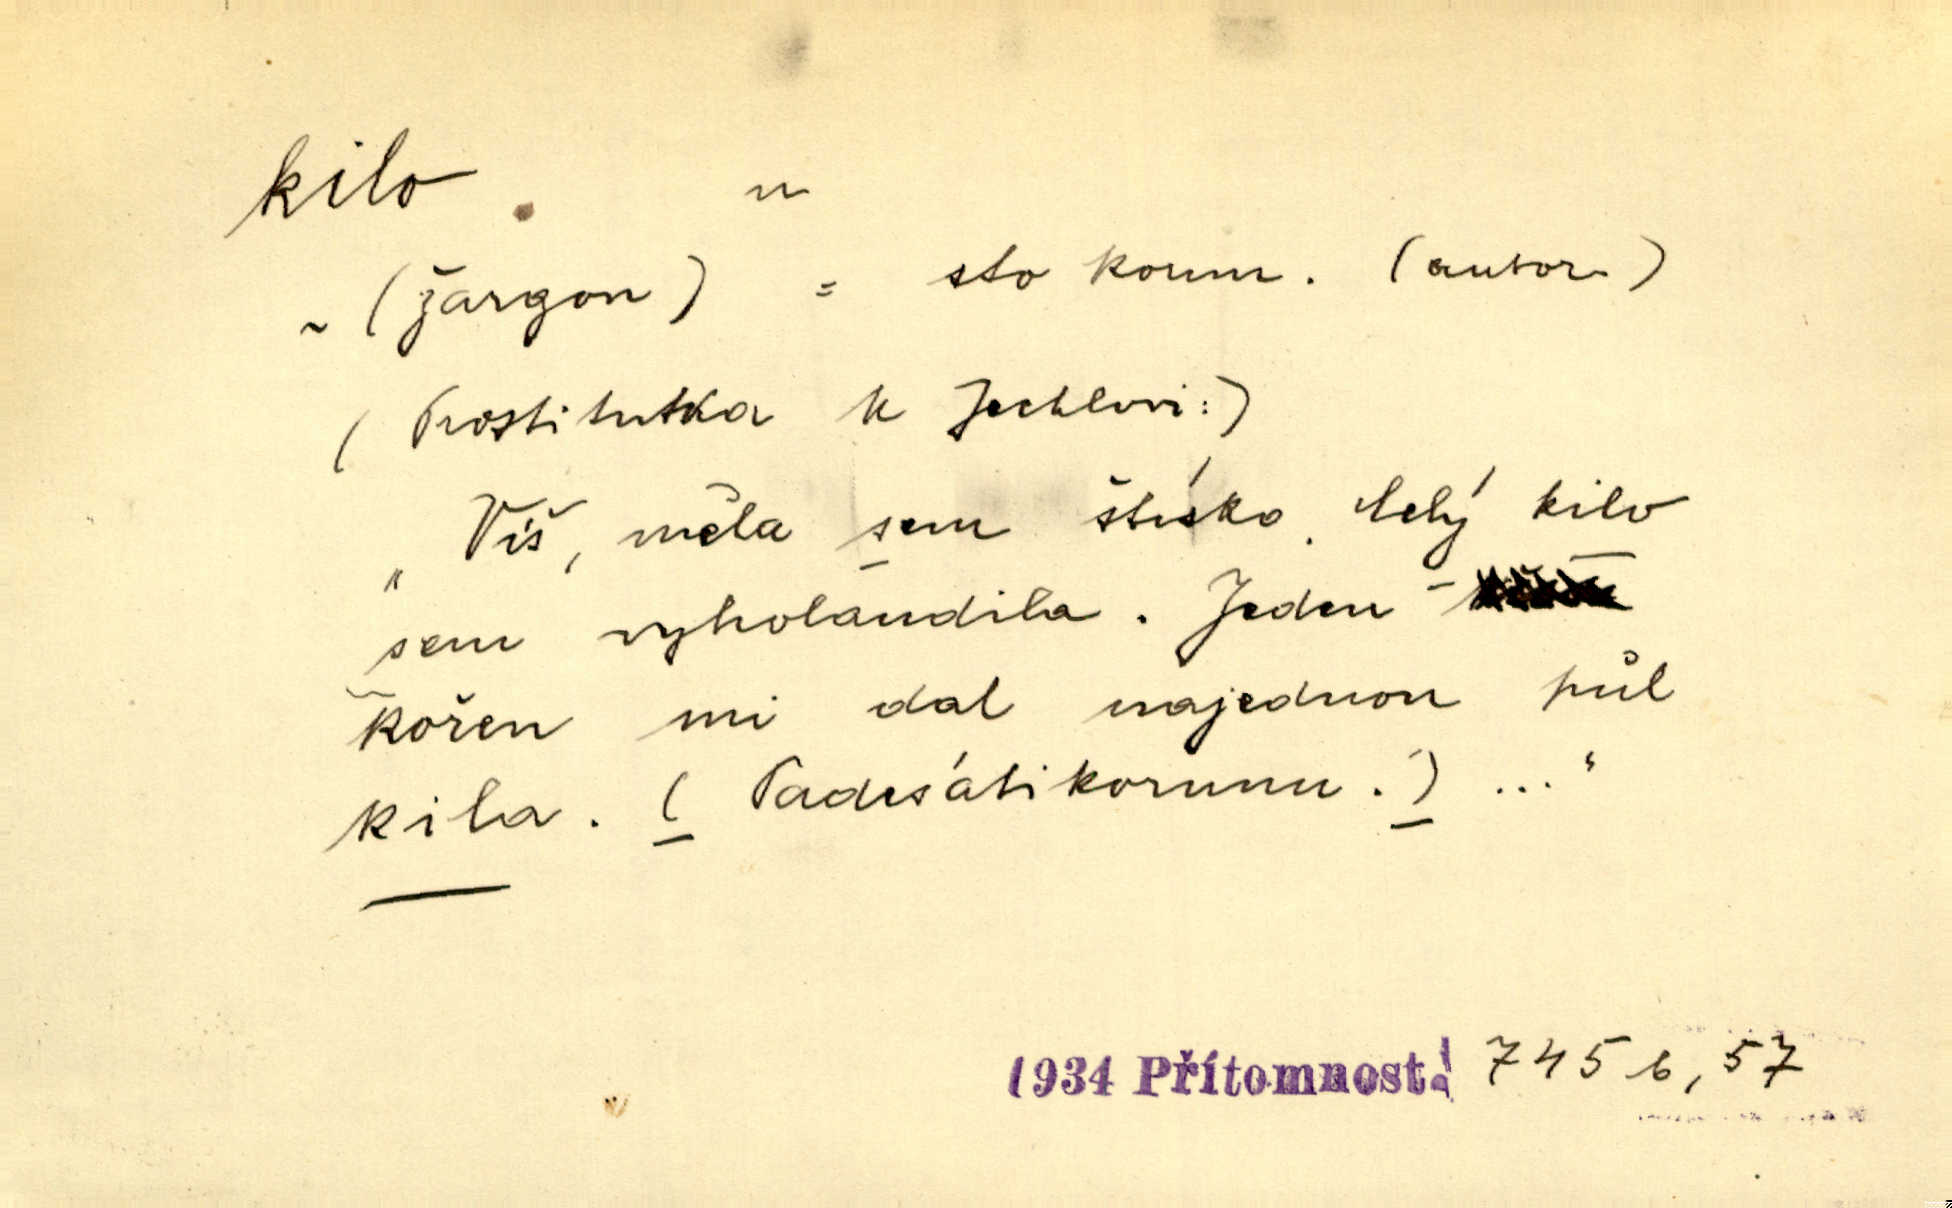 kilo n
~ (žargon) = sto korun. (autor)
(Prostitutka k Jechlovi:)
„Víš, měla sem štísko. Celý kilo
sem vyholandila. Jeden –
kořen mi dal najednou půl
kila. (Padesátikorunu.) ...“
1934 Přítomnost 745 b, 57